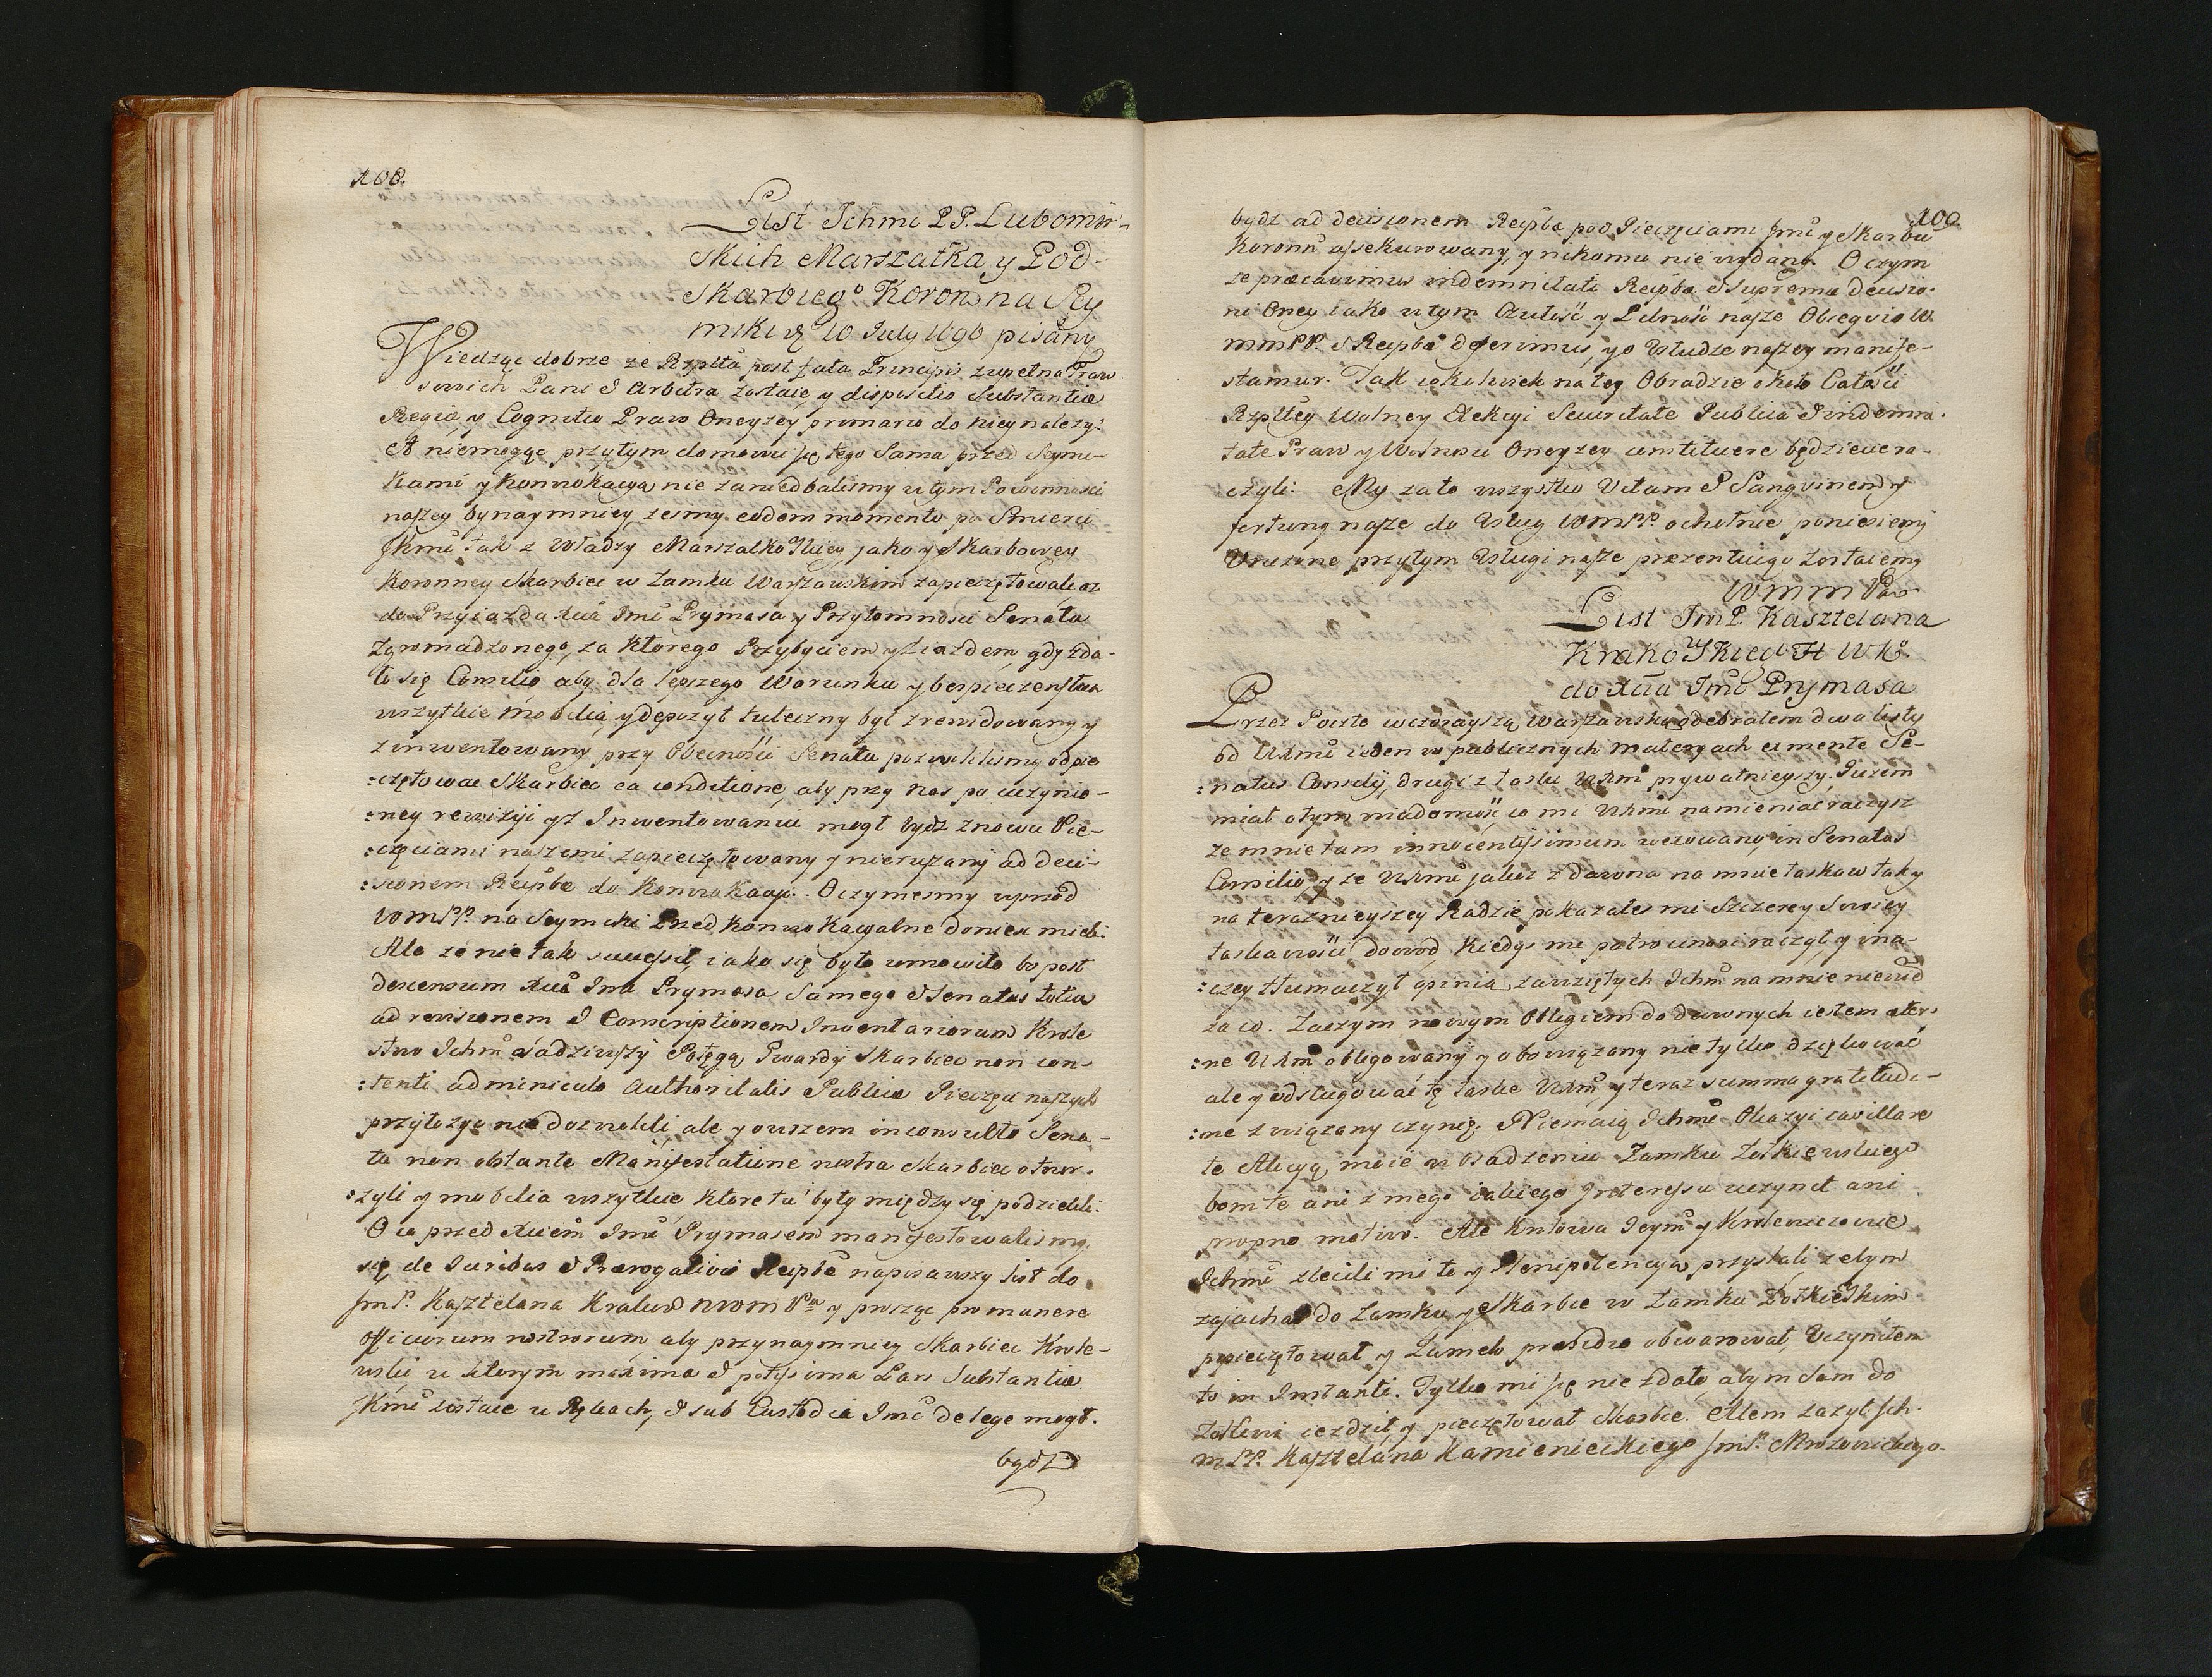 108.
List Ichmc PP. Lubomir-
skich Marszałka y Pod-
skarbiego Koron: na Sey
miki d. 10 July 1696 pisany
Wiedząc dobrze ze Rzplta post fata Principis zupełna Praw
swoich Pani et Arbitra zostaie, y dispositio Substantiæ
Regiæ, y Cognitio Praw Oneyżey primario do niey należy:
A niemogąc przytym domowić się tego Sama przed Seymi-
kami y Konwokacyą nie zaniedbaliśmy w tym Powinności
naszey bynaymniey, żeśmy eodem momento po Śmierci
JKmci tak z Władzy Marszałkoskiey, jako y Skarbowey
Koronney Skarbiec w Zamku Warszawskim zapieczętowali, aż
do Przyiazdu Xcia Jmci Prymasa y Przytomności Senatu
Zgromadzonego, za którego Przybyciem y Ziazdem, gdy zda-
ło się Consilio, aby dla lepszego Warunku y bespieczeństwa
wszytkie mobilia, y depozyt tuteczny był zrewidowany y
zinwentowany przy Obecności Senatu pozwoliliśmy odpie-
:czętować Skarbiec ea conditione, aby przy nas po uczynio-
:ney rewizyi y Inwentowaniu mogł bydź znowu Pie-
:częciami naszemi zapieczętowany y nieruszany ad deci-
:sionem Reipbæ do Konwokacyi. O czymeśmy wprzod
WMPP. na Seymiki Przed Konwokacyalne donieść mieli.
Ale że nie tak successit, iako się było umowiło bo post
descensum Xcia Jmci Prymasa Samego et Senatus totius
ad revisionem et Conscriptionem Inventariorum Krole
stwo Ichmć
Skarbiec non con-
:tenti adminiculo Authoritatis Publicæ Pieczęci naszych
przyłożyć nie dozwolili, ale y owszem inconsulto Sena-
tu non obstante Manifestatione nostra Skarbiec otwor-
:zyli y mobilia wszytkie, które tu były między się podzielili.
O co przed Xciem Jmci Prymasem manifestowaliśmy
się de Juribus et Prærogativis Reipbæ napisawszy list do
JmP. Kasztelana Krakows: y prosząc pro munere
Officiorum nostrorum aby przynaymniey Skarbiec Krole-
wski w którym maxima et potissima Pars Substantiæ
JKmci zostaie w Rękach, et sub Custodia Jmci de lege mogł.
bydź
109
bydź ad decisionem Reipbæ pod Pieczęciami Jmci y Skarbu
Koronn: assekurowany, y nikomu nie wydany. O czym
że præcavimus indemnitati Reipbæ et Supremæ decisio-
ni Oney iako w tym Czułość y Pilność nasze Obsequio W.
mmPP. et Reipbæ deferimus, y o Usłudze naszey manife-
stamur. Tak iakolwiek na tey Obradzie około Całości
Rzpltey Wolney Elekcyi Securitate Publica et indemni-
tate Praw y Wolności Oneyżey constituere będziecie ra-
czyli: My za to wszystko Vitam et Sangvinem y
fortuny nasze do Usług WMPP. ochotnie poniesiemy
Uniżone przytym Usługi nasze prezentuiąc zostaiemy
WmmPP.
List JmP. Kasztelana
Krakoskiego H. W. Ko.
do Xcia Jmci Prymasa
Przez Poczte wczorayszą Warszawską odebrałem dwa listy
od WXmci ieden w publicznych materyach ex mente Se-
:natus Consilij, drugi z łaski WXmci prywatnieyszy. Jużem
miał o tym wiadomość co mi WXmć namieniać raczysz
że mnie tam innocentissimum in Senatus
Consilio, y że WXmć jakoś z dawna na mnie łaskaw tak y
na teraznieyszey Radzie pokazałeś mi Szczerey Swoiey
łaskawości dowod, kiedyś me patrocinari raczył, y ina-
:czey tłumaczył opinią zawziętych Ichm: na mnie niewid
za co. Zaczym nowym Obligiem do dawnych iestem æter-
:ne WXmci obligowany y obowiązany nie tylko dziękować
ale y odsługować tę łaske WXmci y teraz summa gratitudi-
:ne związany czynię. Niemaią Ichmć Okazyi cavillare
te Akcyą moię w osadzeniu Zamku Zołkiewskiego
bom te ani z mego iakiego Interessu uczynił ani
proprio motivo. Ale Krolowa Jeymć y Krolewiczowie
Ichmć zlecili mi to y Plenipotencyą przysłali żebym
zajachał do Zamku y Skarbce w Zamku Zołkieskim
popieczętował y Zamek præsidio obwarował, Uczyniłem
to in Instanti. Tylko mi się nie zdało, abym Sam do
Zołkwi iezdził, y pieczętował Skarbce. Alem zażył Ich-
mPP. Kasztelana Kamienieckiego JmP. Mrozowickiego